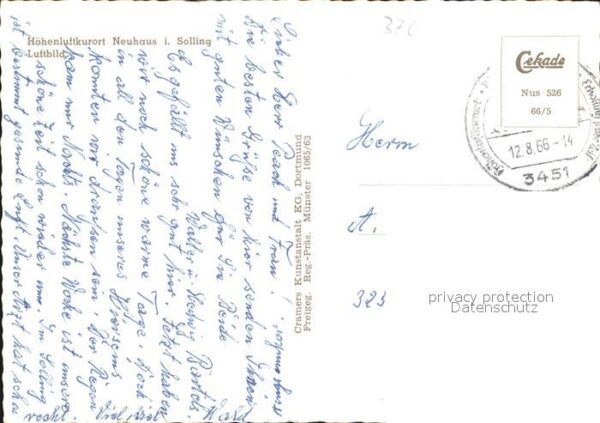 Höhenluftkurort Neuhaus i. Solling
Luftbild
Cekade
Nus 526
66/5
12.8.66-14
3451
Cramers Kunstanstalt KG, Dortmund
Freigeg. Reg.-Präs. Münster 1065/63
Herrn
A.
325
privacy protection
Datenschutz
37C
und Frau!
die besten Grüße von hier senden Ihnen
mit guten Wünschen für Sie Beide
Walter u. Hedwig
Es gefällt uns sehr gut hier. Jetzt haben
wir noch schöne warme Tage, doch
in all den Tagen unseres Hierseins
konnten wir draußen sein, der Regen
kam nur Nachts. Nächste Woche ist unsere
schöne Zeit schon wieder um. Im Solling
ist bestimmt gesunde Luft. Unser Arzt hat schon
recht. Viel Wald